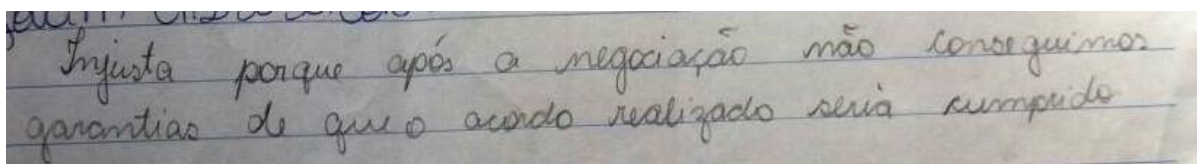 Injusta porque após a negociação não conseguimos
garantias de que o acordo realizado seria cumprido